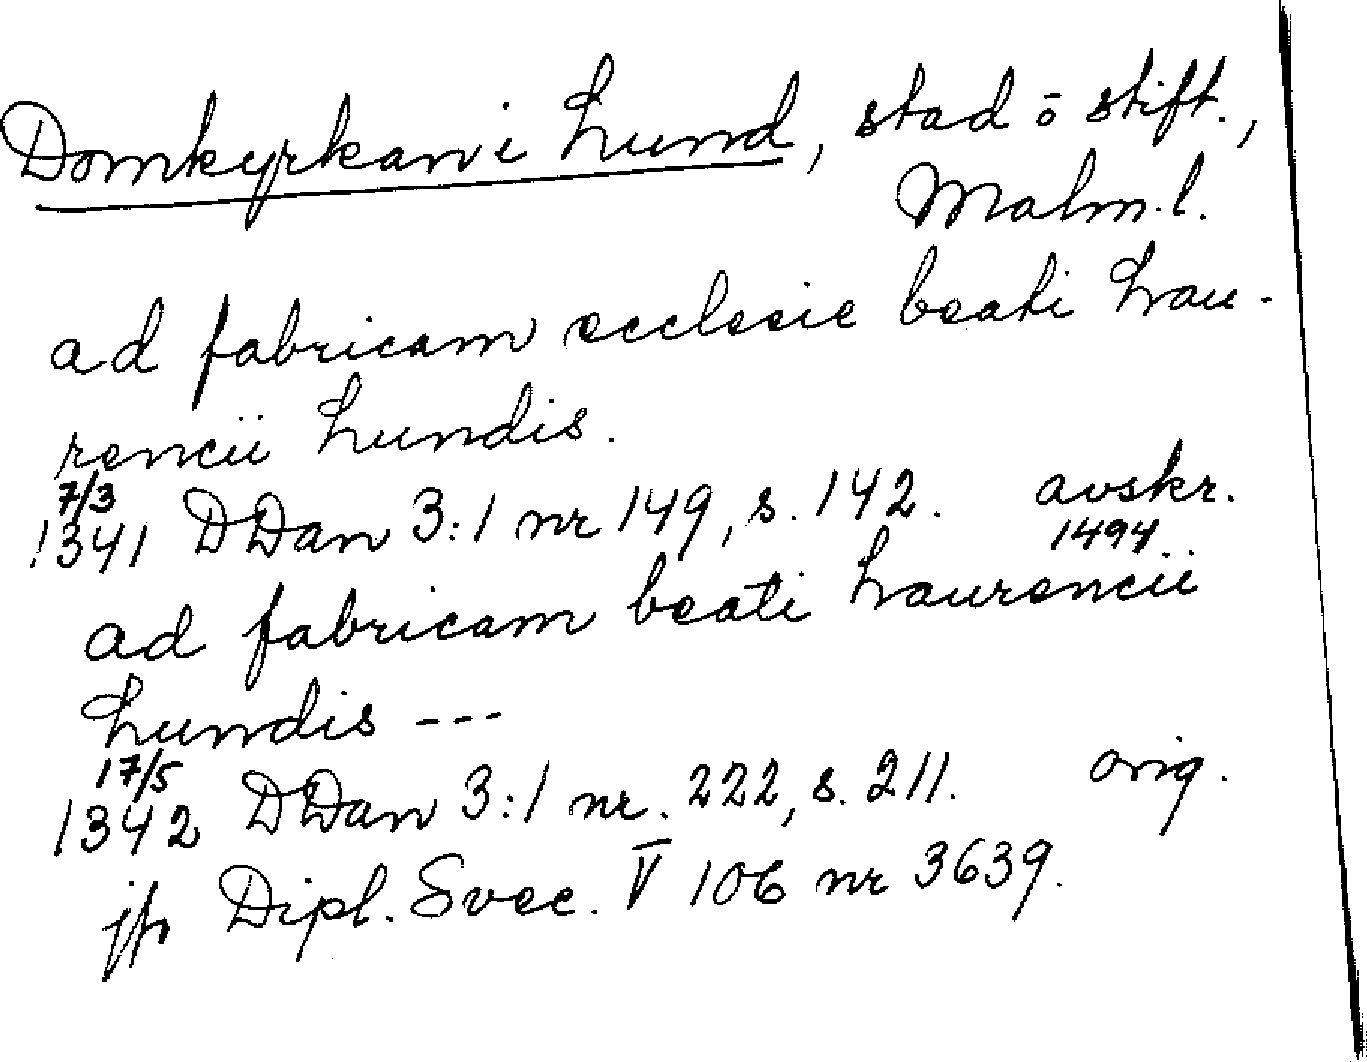 Domkyrkan i Lund, stad o stift.,
Malm.l.
ad fabricam ecclesie beati Lau-
rencii Lundis.
7/3
1341 DDan 3:1 nr 149, s. 142. avskr.
1494
ad fabricam beati Laurencii
Lundis ---
17/5
1342 DDan 3:1 nr. 222, s. 211. orig.
jfr Dipl. Svec. V 106 nr 3639.